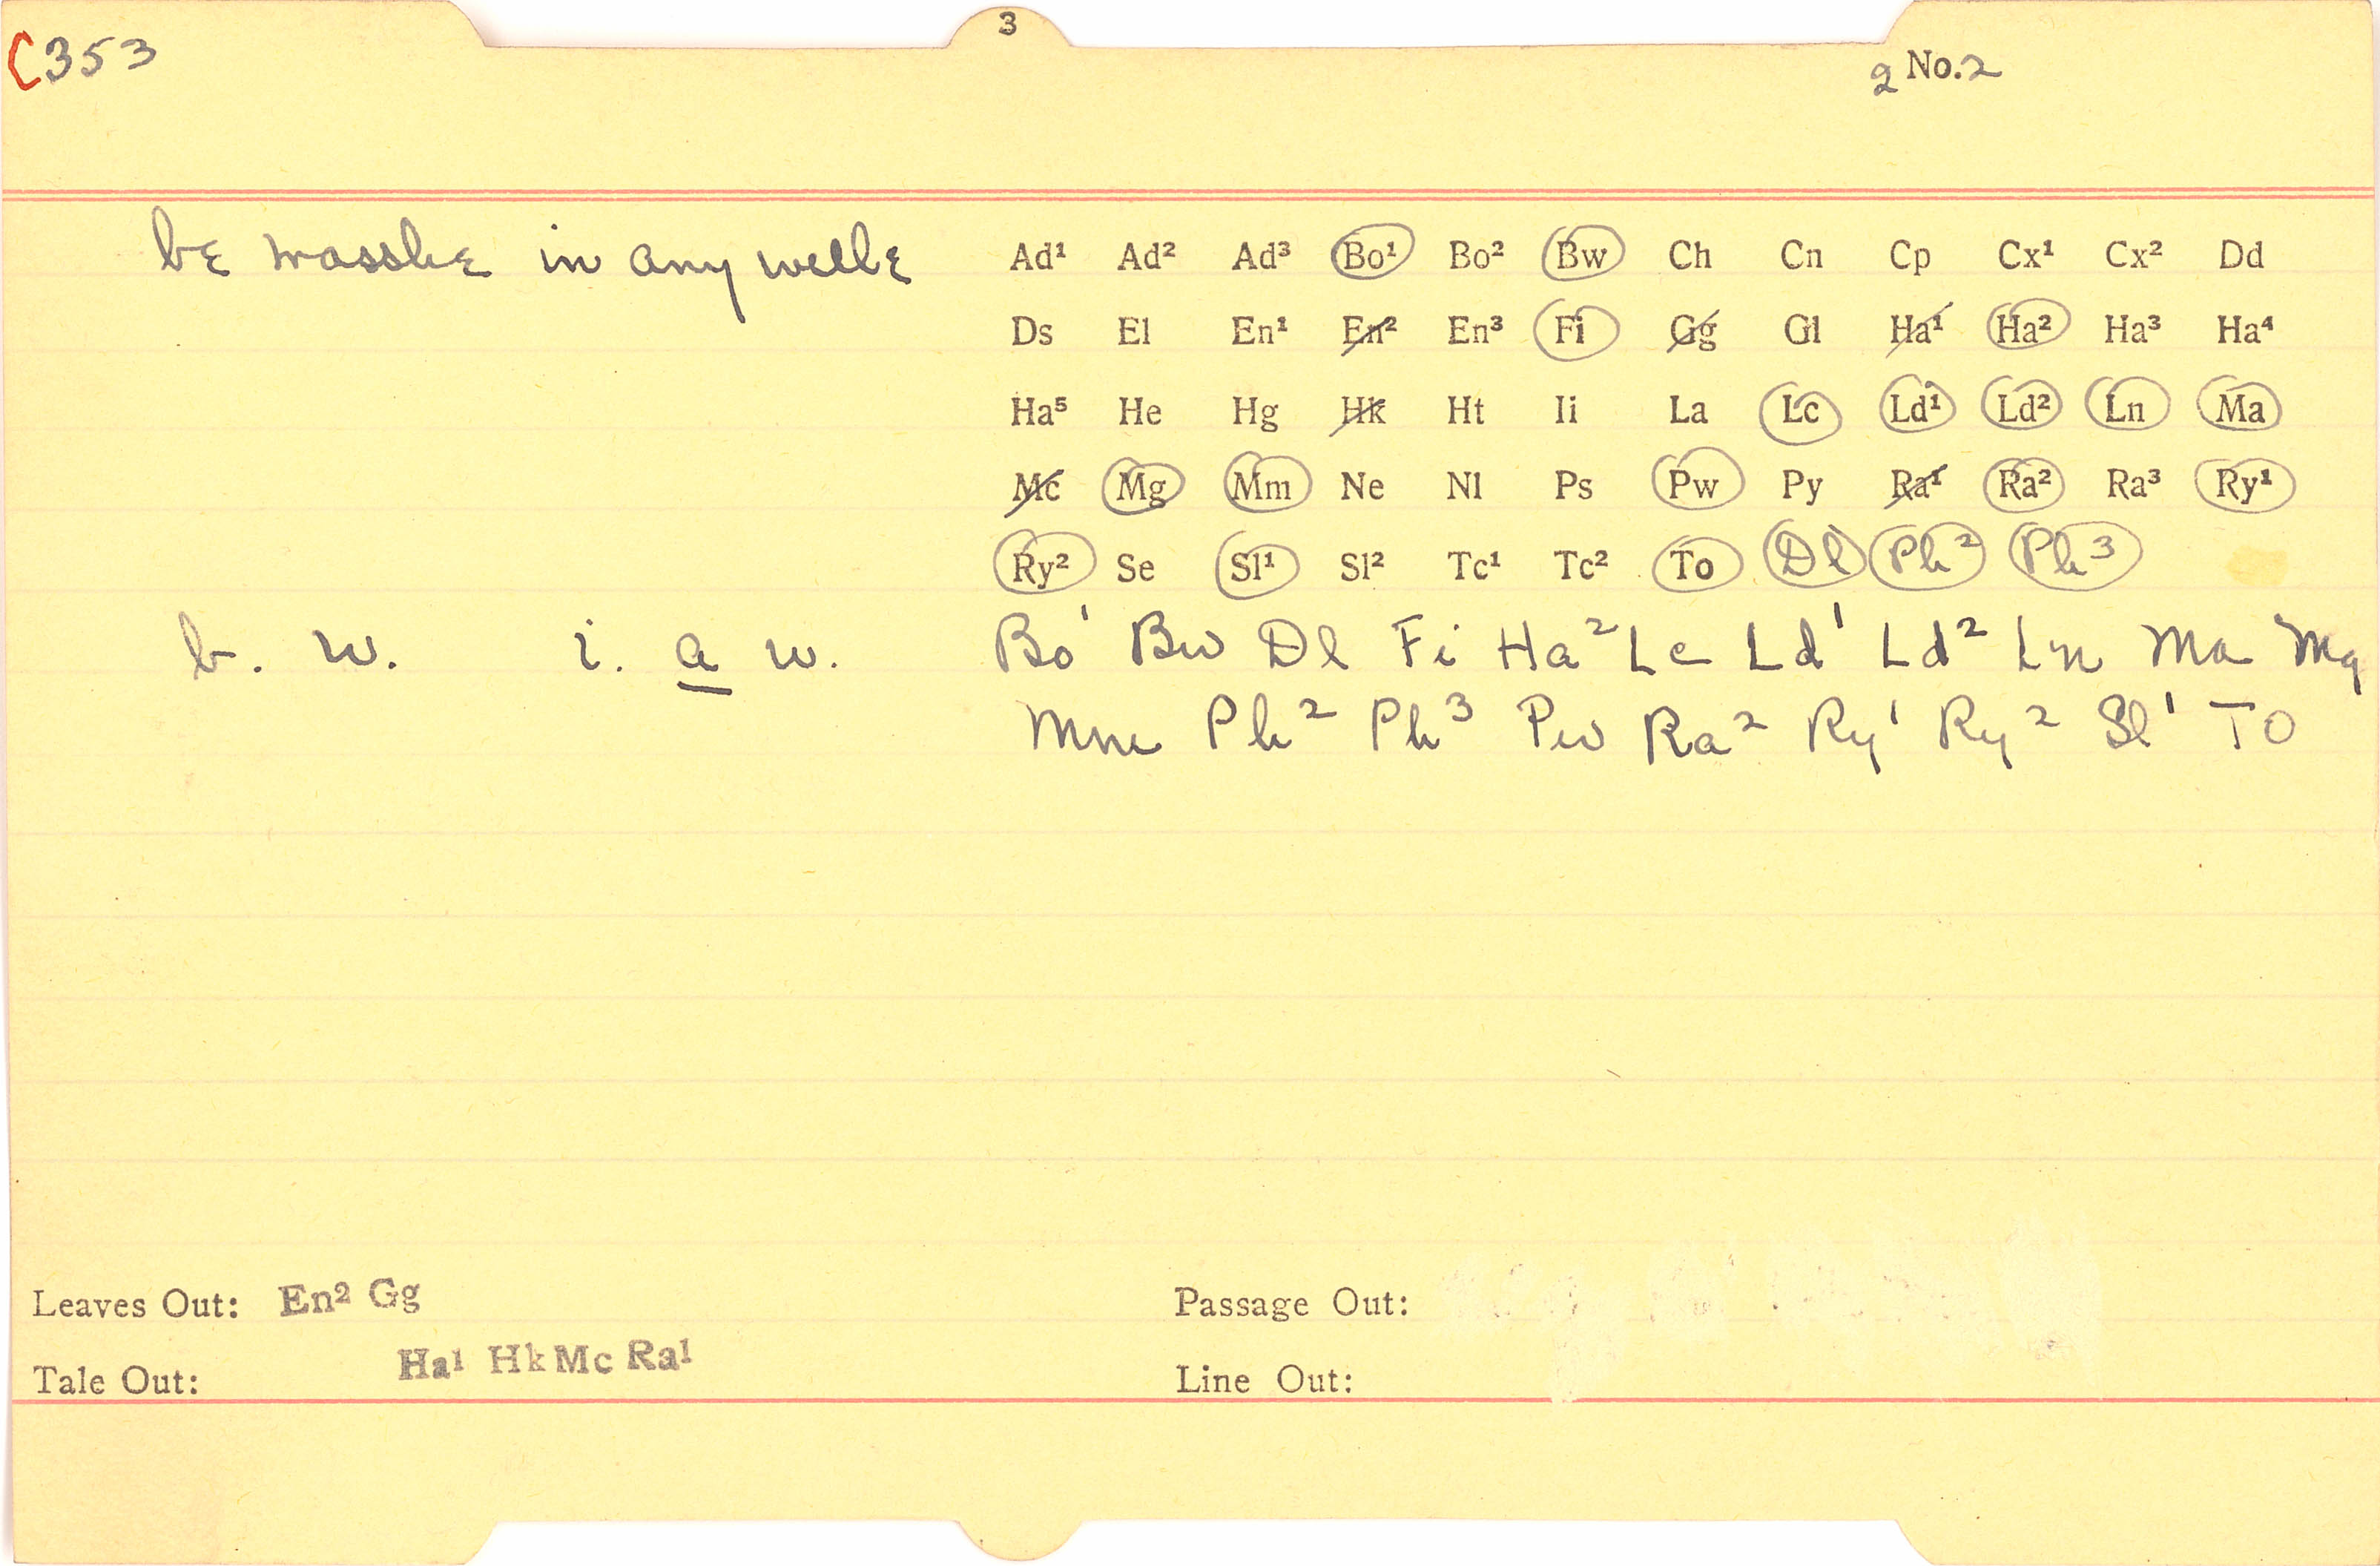 3
C353
2 No.2
be wasshe in any welle Ad¹ Ad² Ad³ Bo¹ Bo² Bw Ch Cn Cp Cx¹ Cx² Dd
Ds El En¹ En² En³ Fi Gg Gl Ha¹ Ha² Ha³ Ha⁴
Ha⁵ He Hg Hk Ht Ii La Lc Ld¹ Ld² Ln Ma
Mc Mg Mm Ne Nl Ps Pw Py Ra¹ Ra² Ra³ Ry¹
Ry² Se Sl¹ Sl² Tc¹ Tc² To Dl Ph² Ph³
b. w. i. a w. Bo¹ Bw Dl Fi Ha² Lc Ld¹ Ld² Ln Ma Mg
Mm Ph² Ph³ Pw Ra² Ry¹ Ry² Sl¹ To
Leaves Out: En² Gg Passage Out:
Ha¹ Hk Mc Ra¹
Tale Out: Line Out: